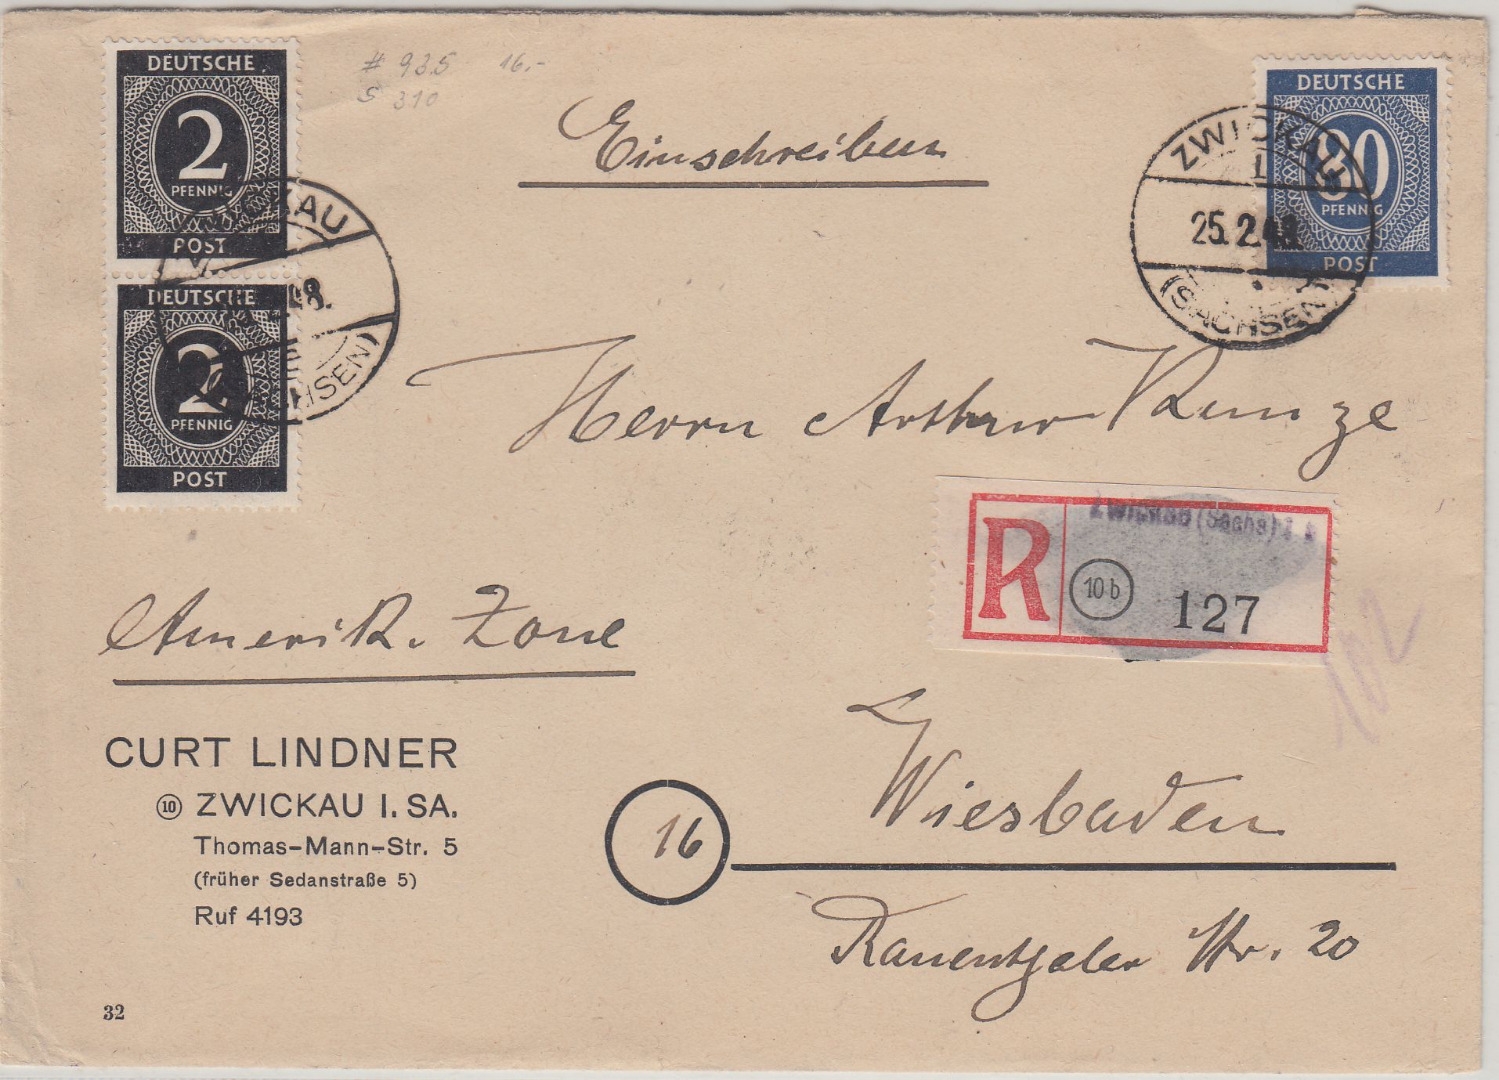 DEUTSCHE
2
PFENNIG
POST
DEUTSCHE
2
PFENNIG
POST
ZWICKAU
48.
(SACHSEN)
# 935 16.-
S 310
Einschreiben
DEUTSCHE
80
PFENNIG
POST
ZWICKAU
25.2.48.
(SACHSEN)
Herrn Arthur Kunze
R
Zwickau (Sachs)
10 b
127
102
Amerik. Zone
CURT LINDNER
10 ZWICKAU I. SA.
Thomas-Mann-Str. 5
(früher Sedanstraße 5)
Ruf 4193
16
Wiesbaden
Rauenthaler Str. 20
32